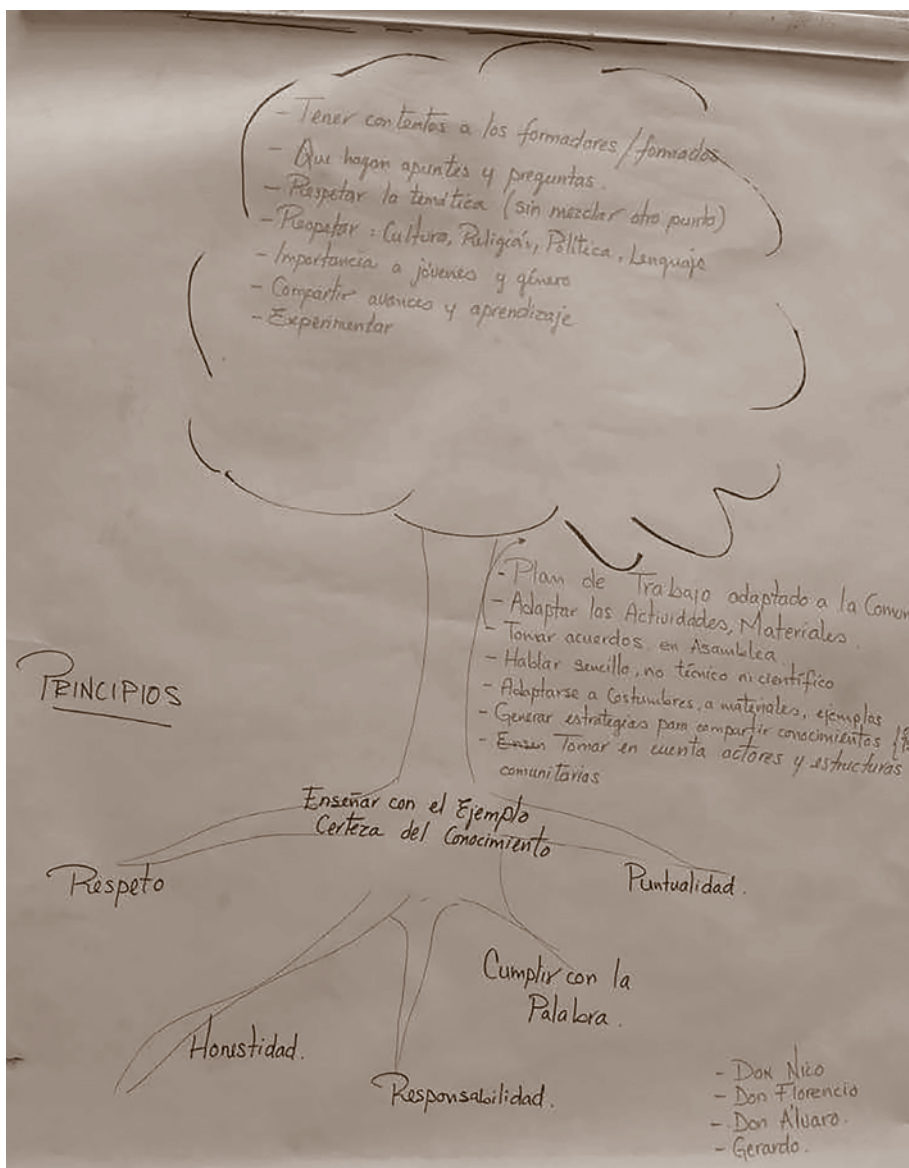 - Tener contentos a los formadores/formados
- Que hagan apuntes y preguntas.
- Respetar la temática (sin mezclar otro punto)
- Respetar: Cultura, Religión, Política, Lenguaje
- Importancia a jóvenes y género
- Compartir avances y aprendizaje
- Experimentar
- Plan de Trabajo adaptado a la Comun
- Adaptar las Actividades, Materiales.
- Tomar acuerdos en Asamblea.
- Hablar sencillo, no técnico ni científico
- Adaptarse a Costumbres, a materiales, ejemplos
- Generar estrategias para compartir conocimientos {
- Tomar en cuenta actores y estructuras
comunitarias
PRINCIPIOS
Enseñar con el Ejemplo
Certeza del Conocimiento
Respeto
Puntualidad.
Cumplir con la
Palabra.
Honestidad.
Responsabilidad.
- Don Nico
- Don Florencio
- Don Álvaro.
- Gerardo.